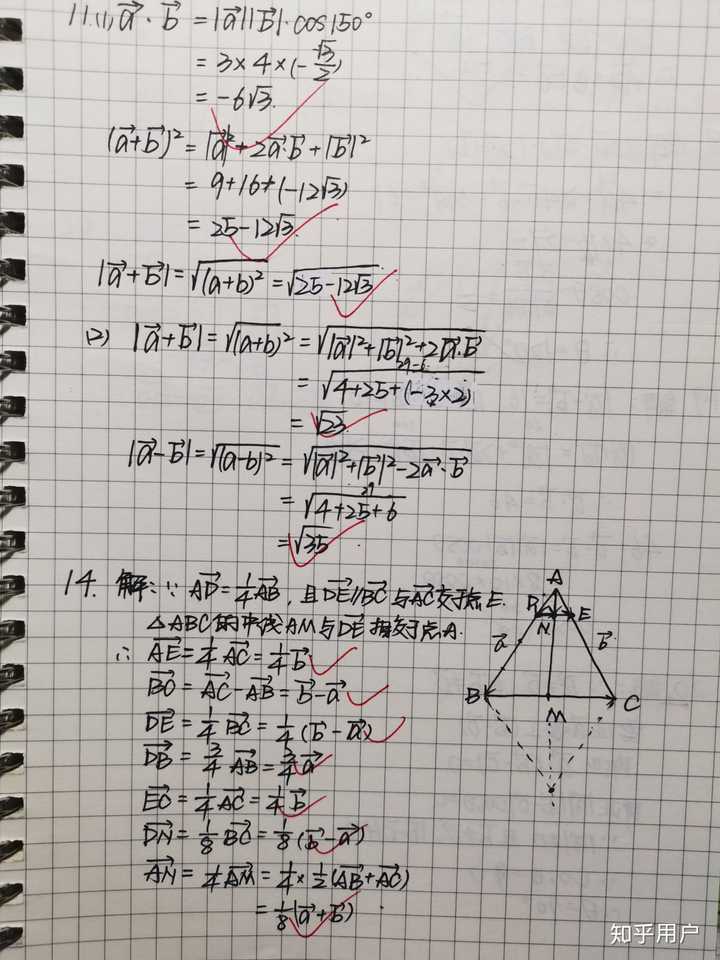 11.(1) a⃗·b⃗ = |a⃗||b⃗|·cos150°
= 3×4×(-√3/2)
= -6√3.
(a⃗+b⃗)² = |a⃗|²+2a⃗·b⃗+|b⃗|²
= 9+16+(-12√3)
= 25-12√3.
|a⃗+b⃗| = √(a+b)² = √25-12√3
(2) |a⃗+b⃗| = √(a+b)² = √|a⃗|²+|b⃗|²+2a⃗·b⃗
29-6
= √4+25+(-3×2)
= √23
|a⃗-b⃗| = √(a-b)² = √|a⃗|²+|b⃗|²-2a⃗·b⃗
29
= √4+25+6
= √35
14. 解:∵ AD⃗=1/4AB⃗, 且DE⃗//BC⃗与AC⃗交于点E.
△ABC的中线AM与DE⃗相交于点A.
∴ AE⃗=1/4AC⃗=1/4b⃗
BC⃗=AC⃗-AB⃗=b⃗-a⃗
DE⃗=1/4BC⃗=1/4(b⃗-a⃗)
DB⃗=3/4AB⃗=3/4a⃗
EC⃗=1/4AC⃗=1/4b⃗
DN⃗=1/8BC⃗=1/8(b⃗-a⃗)
AN⃗=1/4AM⃗=1/4×1/2(AB⃗+AC⃗)
=1/8(a⃗+b⃗)
A
D
E
N
a⃗
b⃗
B
M
C
知乎用户